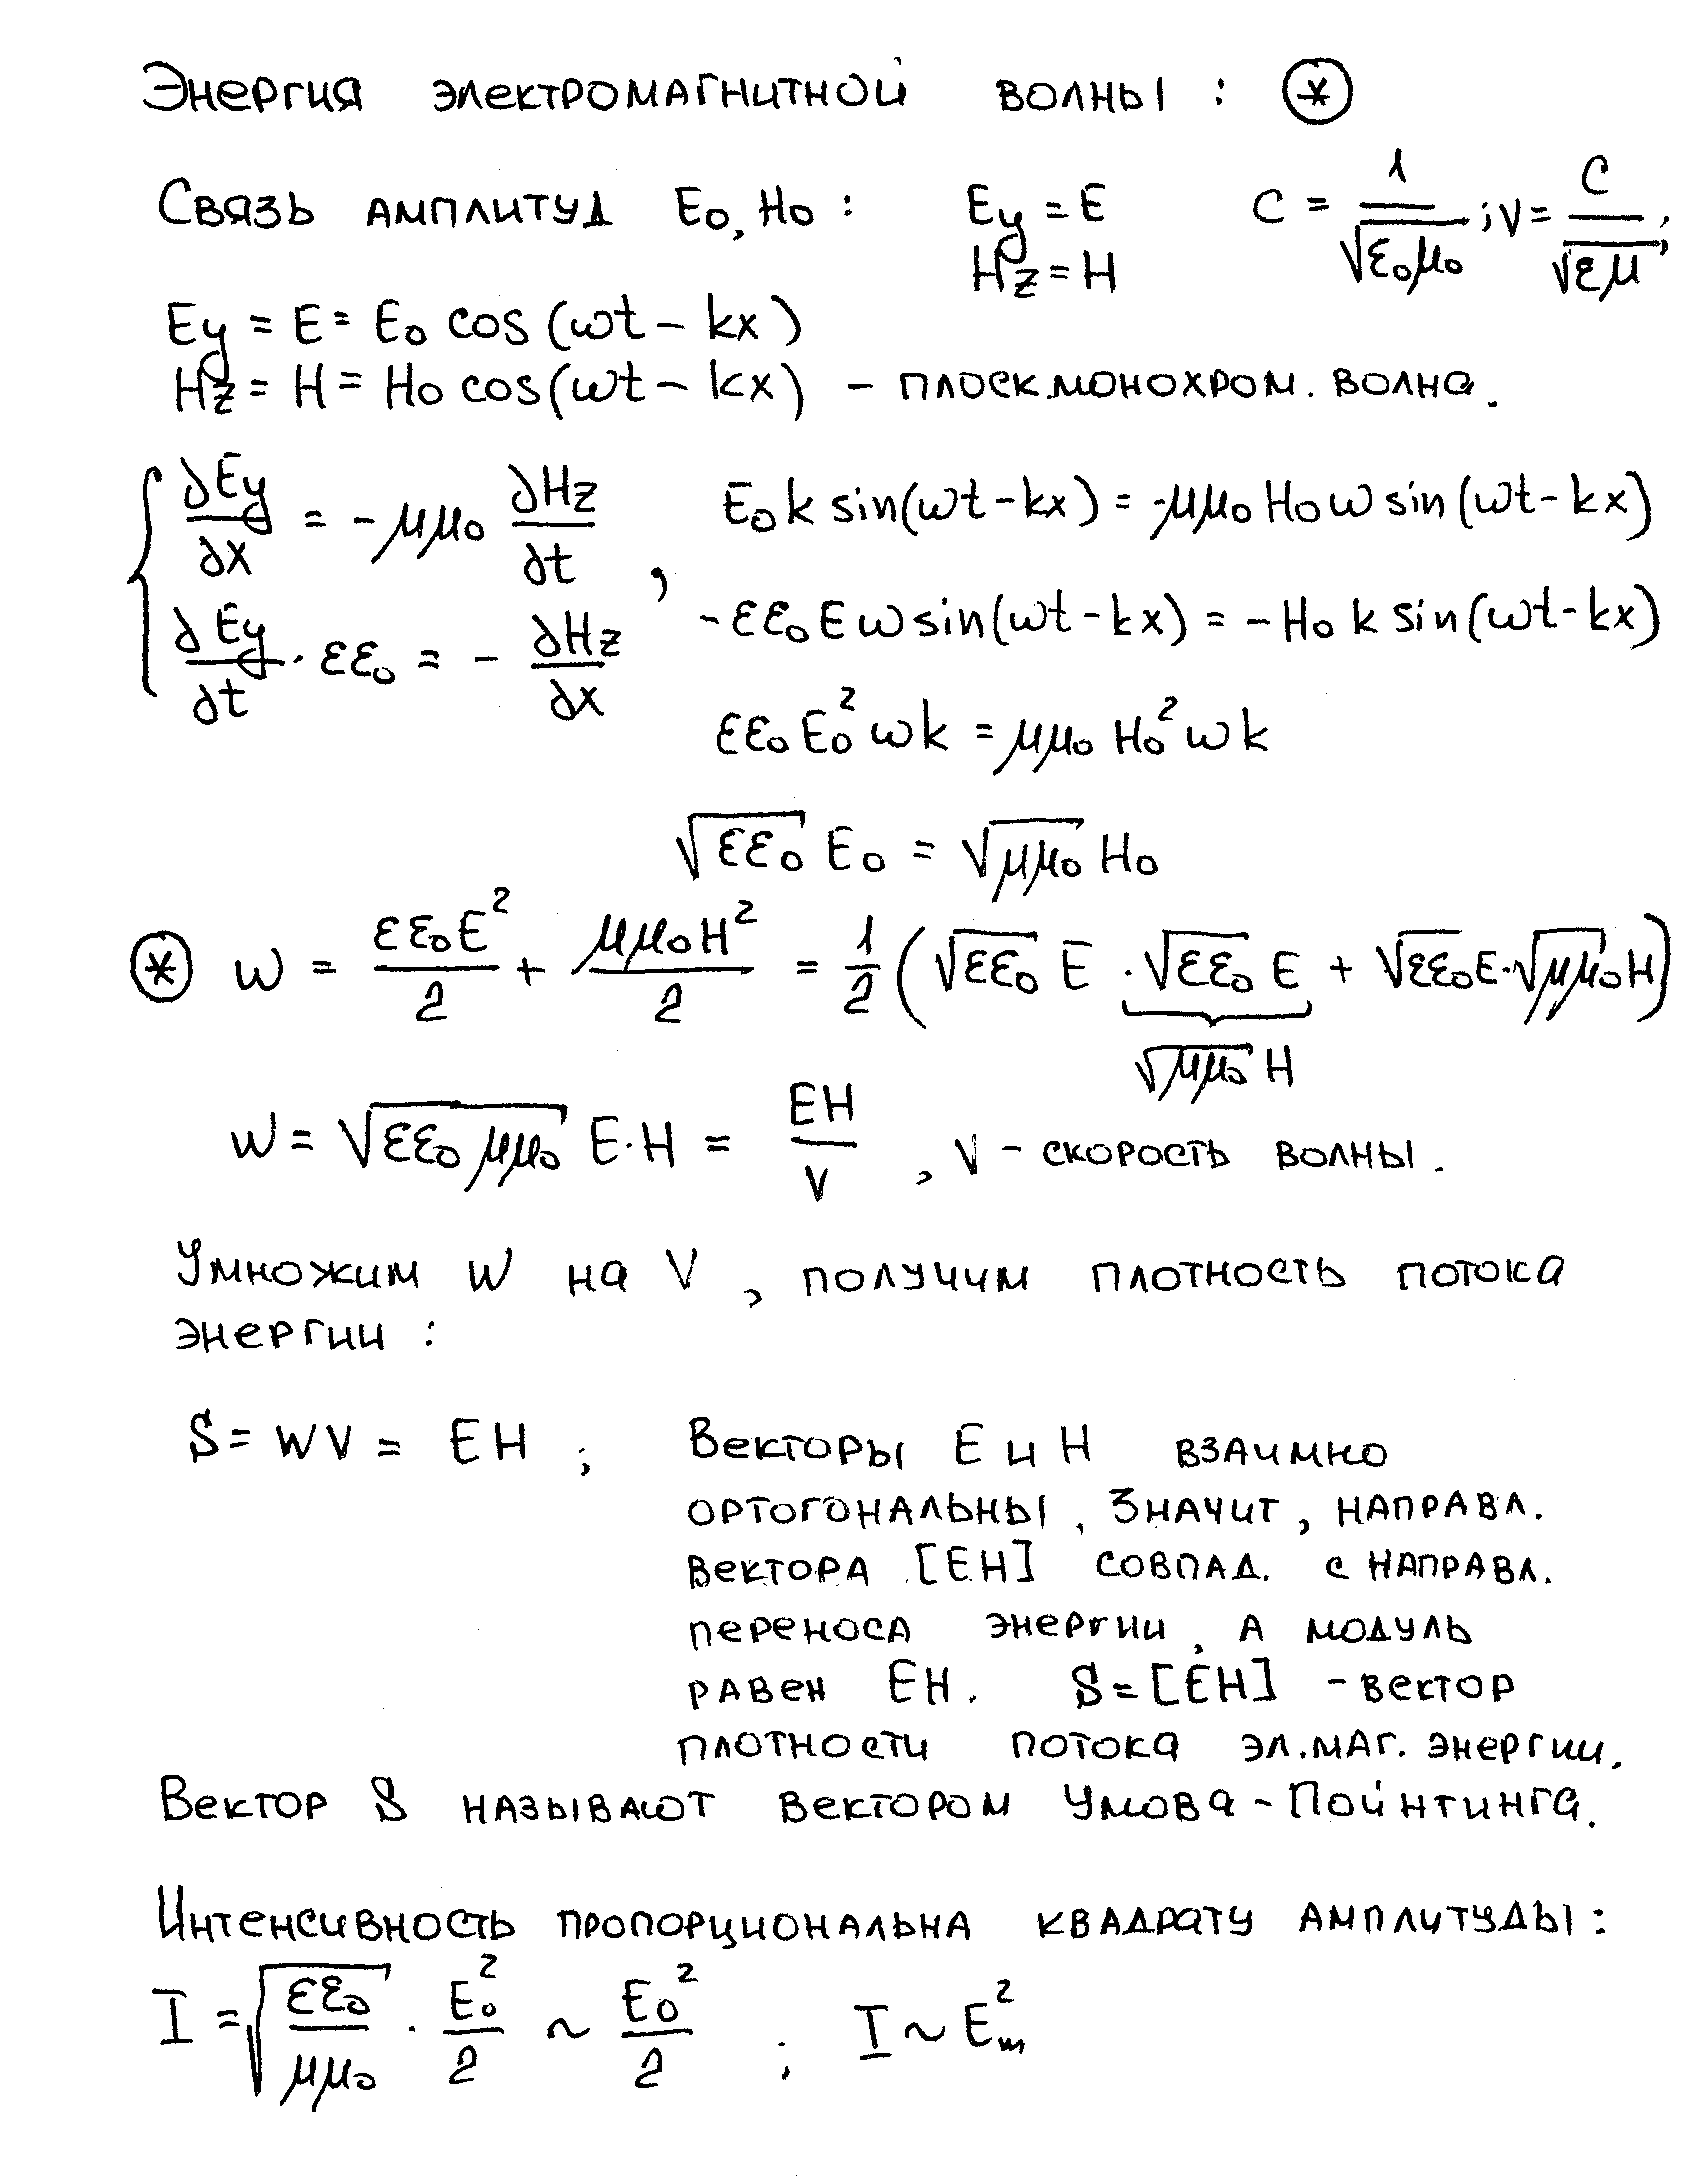 Энергия электромагнитной волны : (*)
Связь амплитуд E₀, H₀ : Ey = E C = 1/√(ε₀μ₀) ; V = C/√(εμ) ;
Hz = H
Ey = E = E₀ cos (ωt − kx)
Hz = H = H₀ cos(ωt − kx) – плоск.монохром. волна.
{ ∂Ey/∂x = −μμ₀ ∂Hz/∂t , E₀ k sin(ωt−kx) = −μμ₀ H₀ ω sin(ωt−kx)
∂Ey/∂t · εε₀ = − ∂Hz/∂x −εε₀ E ω sin(ωt−kx) = −H₀ k sin(ωt−kx)
εε₀ E₀² ωk = μμ₀ H₀² ωk
√(εε₀) E₀ = √(μμ₀) H₀
(*) w = εε₀E²/2 + μμ₀H²/2 = 1/2 (√(εε₀) E · √(εε₀) E + √(εε₀)E·√(μμ₀)H)
√(μμ₀) H
w = √(εε₀ μμ₀) E·H = EH/V , V – скорость волны.
Умножим w на V, получим плотность потока
энергии :
S = wV = EH ; Векторы E и H взаимно
ортогональны, значит, направл.
вектора [EH] совпад. с направл.
переноса энергии, а модуль
равен EH. S = [EH] – вектор
плотности потока эл.маг. энергии.
Вектор S называют вектором Умова – Пойнтинга.
Интенсивность пропорциональна квадрату амплитуды :
I = √(εε₀/μμ₀) · E₀²/2 ~ E₀²/2 ; I ~ Em²